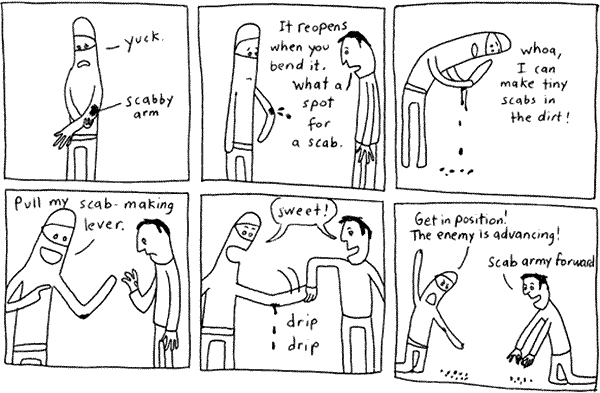 yuck.
scabby
arm
It reopens
when you
bend it.
what a
spot
for
a scab.
whoa,
I can
make tiny
scabs in
the dirt!
Pull my scab-making
lever.
sweet!
drip
drip
Get in position!
The enemy is advancing!
Scab army forward